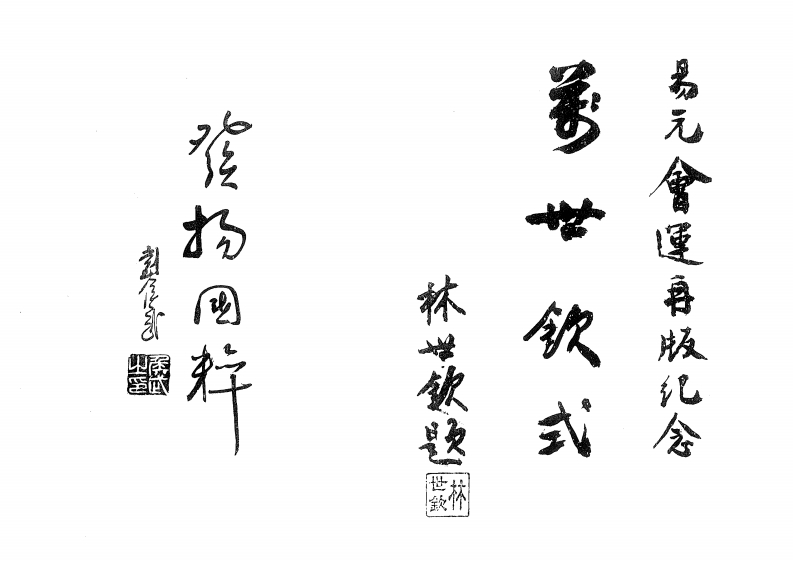 易元會運再版紀念
萬世欽式
林世欽題
林世欽
發揚國粹